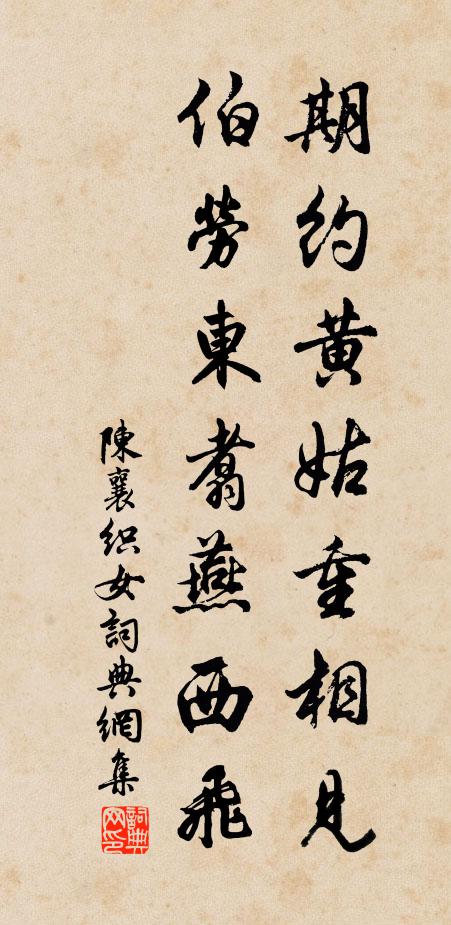 期约黄姑重相见
伯劳東翥燕西飛
陳襄织女詞典網集
詞典网印